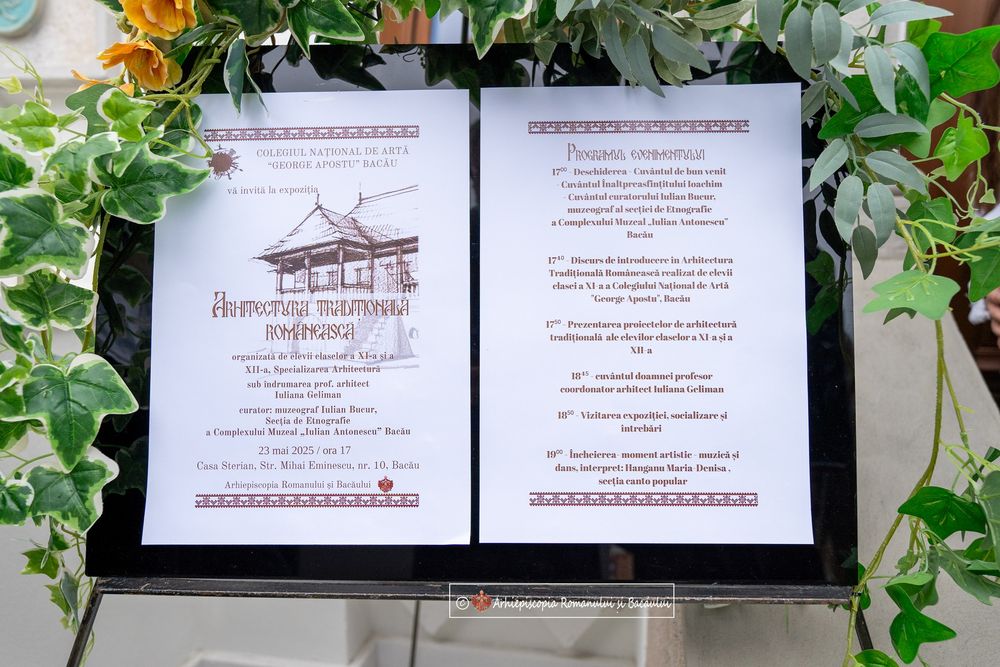 COLEGIUL NAȚIONAL DE ARTĂ
"GEORGE APOSTU" BACĂU
vă invită la expoziția
ARHITECTURA TRADIȚIONALĂ
ROMÂNEASCĂ
organizată de elevii claselor a XI-a și a
XII-a, Specializarea Arhitectură
sub îndrumarea prof. arhitect
Iuliana Geliman
curator: muzeograf Iulian Bucur,
Secția de Etnografie
a Complexului Muzeal „Iulian Antonescu” Bacău
23 mai 2025 / ora 17
Casa Sterian, Str. Mihai Eminescu, nr. 10, Bacău
Arhiepiscopia Romanului și Bacăului
PROGRAMUL EVENIMENTULUI
17⁰⁰ - Deschiderea - Cuvântul de bun venit
- Cuvântul Înaltpreasfințitului Ioachim
- Cuvântul curatorului Iulian Bucur,
muzeograf al secției de Etnografie
a Complexului Muzeal „Iulian Antonescu”
Bacău
17⁴⁰ - Discurs de introducere in Arhitectura
Tradițională Românească realizat de elevii
clasei a XI-a a Colegiului Național de Artă
"George Apostu", Bacău
17⁵⁰ - Prezentarea proiectelor de arhitectură
tradițională ale elevilor claselor a XI-a și a
XII-a
18⁴⁵ - cuvântul doamnei profesor
coordonator arhitect Iuliana Geliman
18⁵⁰ - Vizitarea expoziției, socializare și
intrebări
19⁰⁰ - Încheierea- moment artistic - muzică și
dans, interpret: Hanganu Maria-Denisa ,
secția canto popular
© Arhiepiscopia Romanului și Bacăului